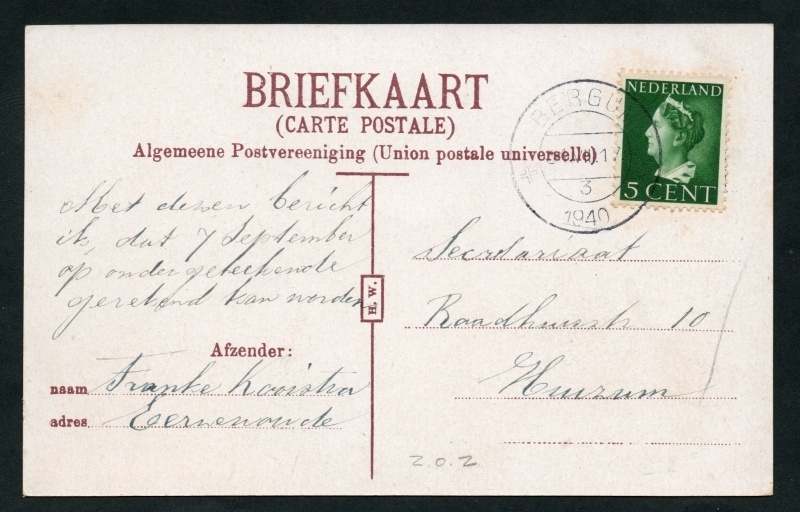 BRIEFKAART
(CARTE POSTALE)
Algemeene Postvereeniging (Union postale universelle)
NEDERLAND
5 CENT
BERGU
3
1940
Met dezen bericht
ik, dat 7 September
op ondergeteekende
gerekend kan worden
H. W.
Afzender:
naam Franke Kooistra
adres Eernewoude
Secretariaat
Raadhuisstr 10
Huizum
2.0.2